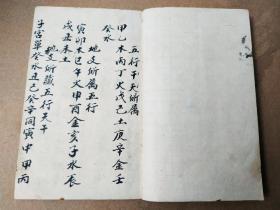 五行干支所属
甲乙木丙丁火戊己土庚辛金壬
癸水
地支所属五行
寅卯木巳午火申酉金亥子水辰
戌丑未土
地支所藏五行天干
子宮單癸水丑己癸辛同寅中甲丙